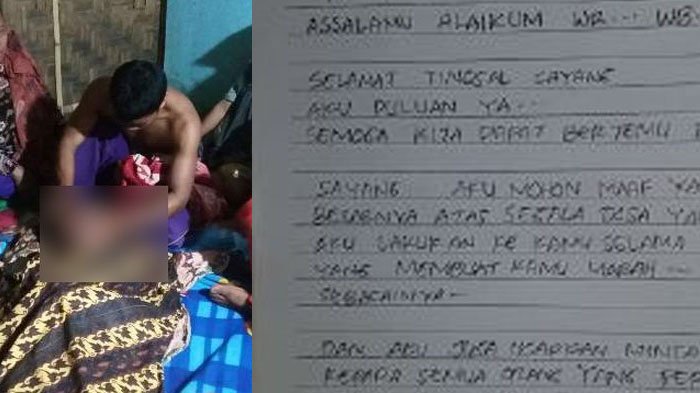 ASSALAMU ALAIKUM WR... WB
SELAMAT TINGGAL SAYANG
AKU DULUAN YA..
SEMOGA KITA DAPAT BERTEMU
SAYANG AKU MOHON MAAF YA
BESARNYA ATAS SEGALA DOSA YA
AKU LAKUKAN KE KAMU SELAMA
YANG MEMBUAT KAMU MARAH --
SEBAGAINYA -
DAN AKU JUGA UCAPKAN MINTA
KEPADA SEMUA ORANG YANG